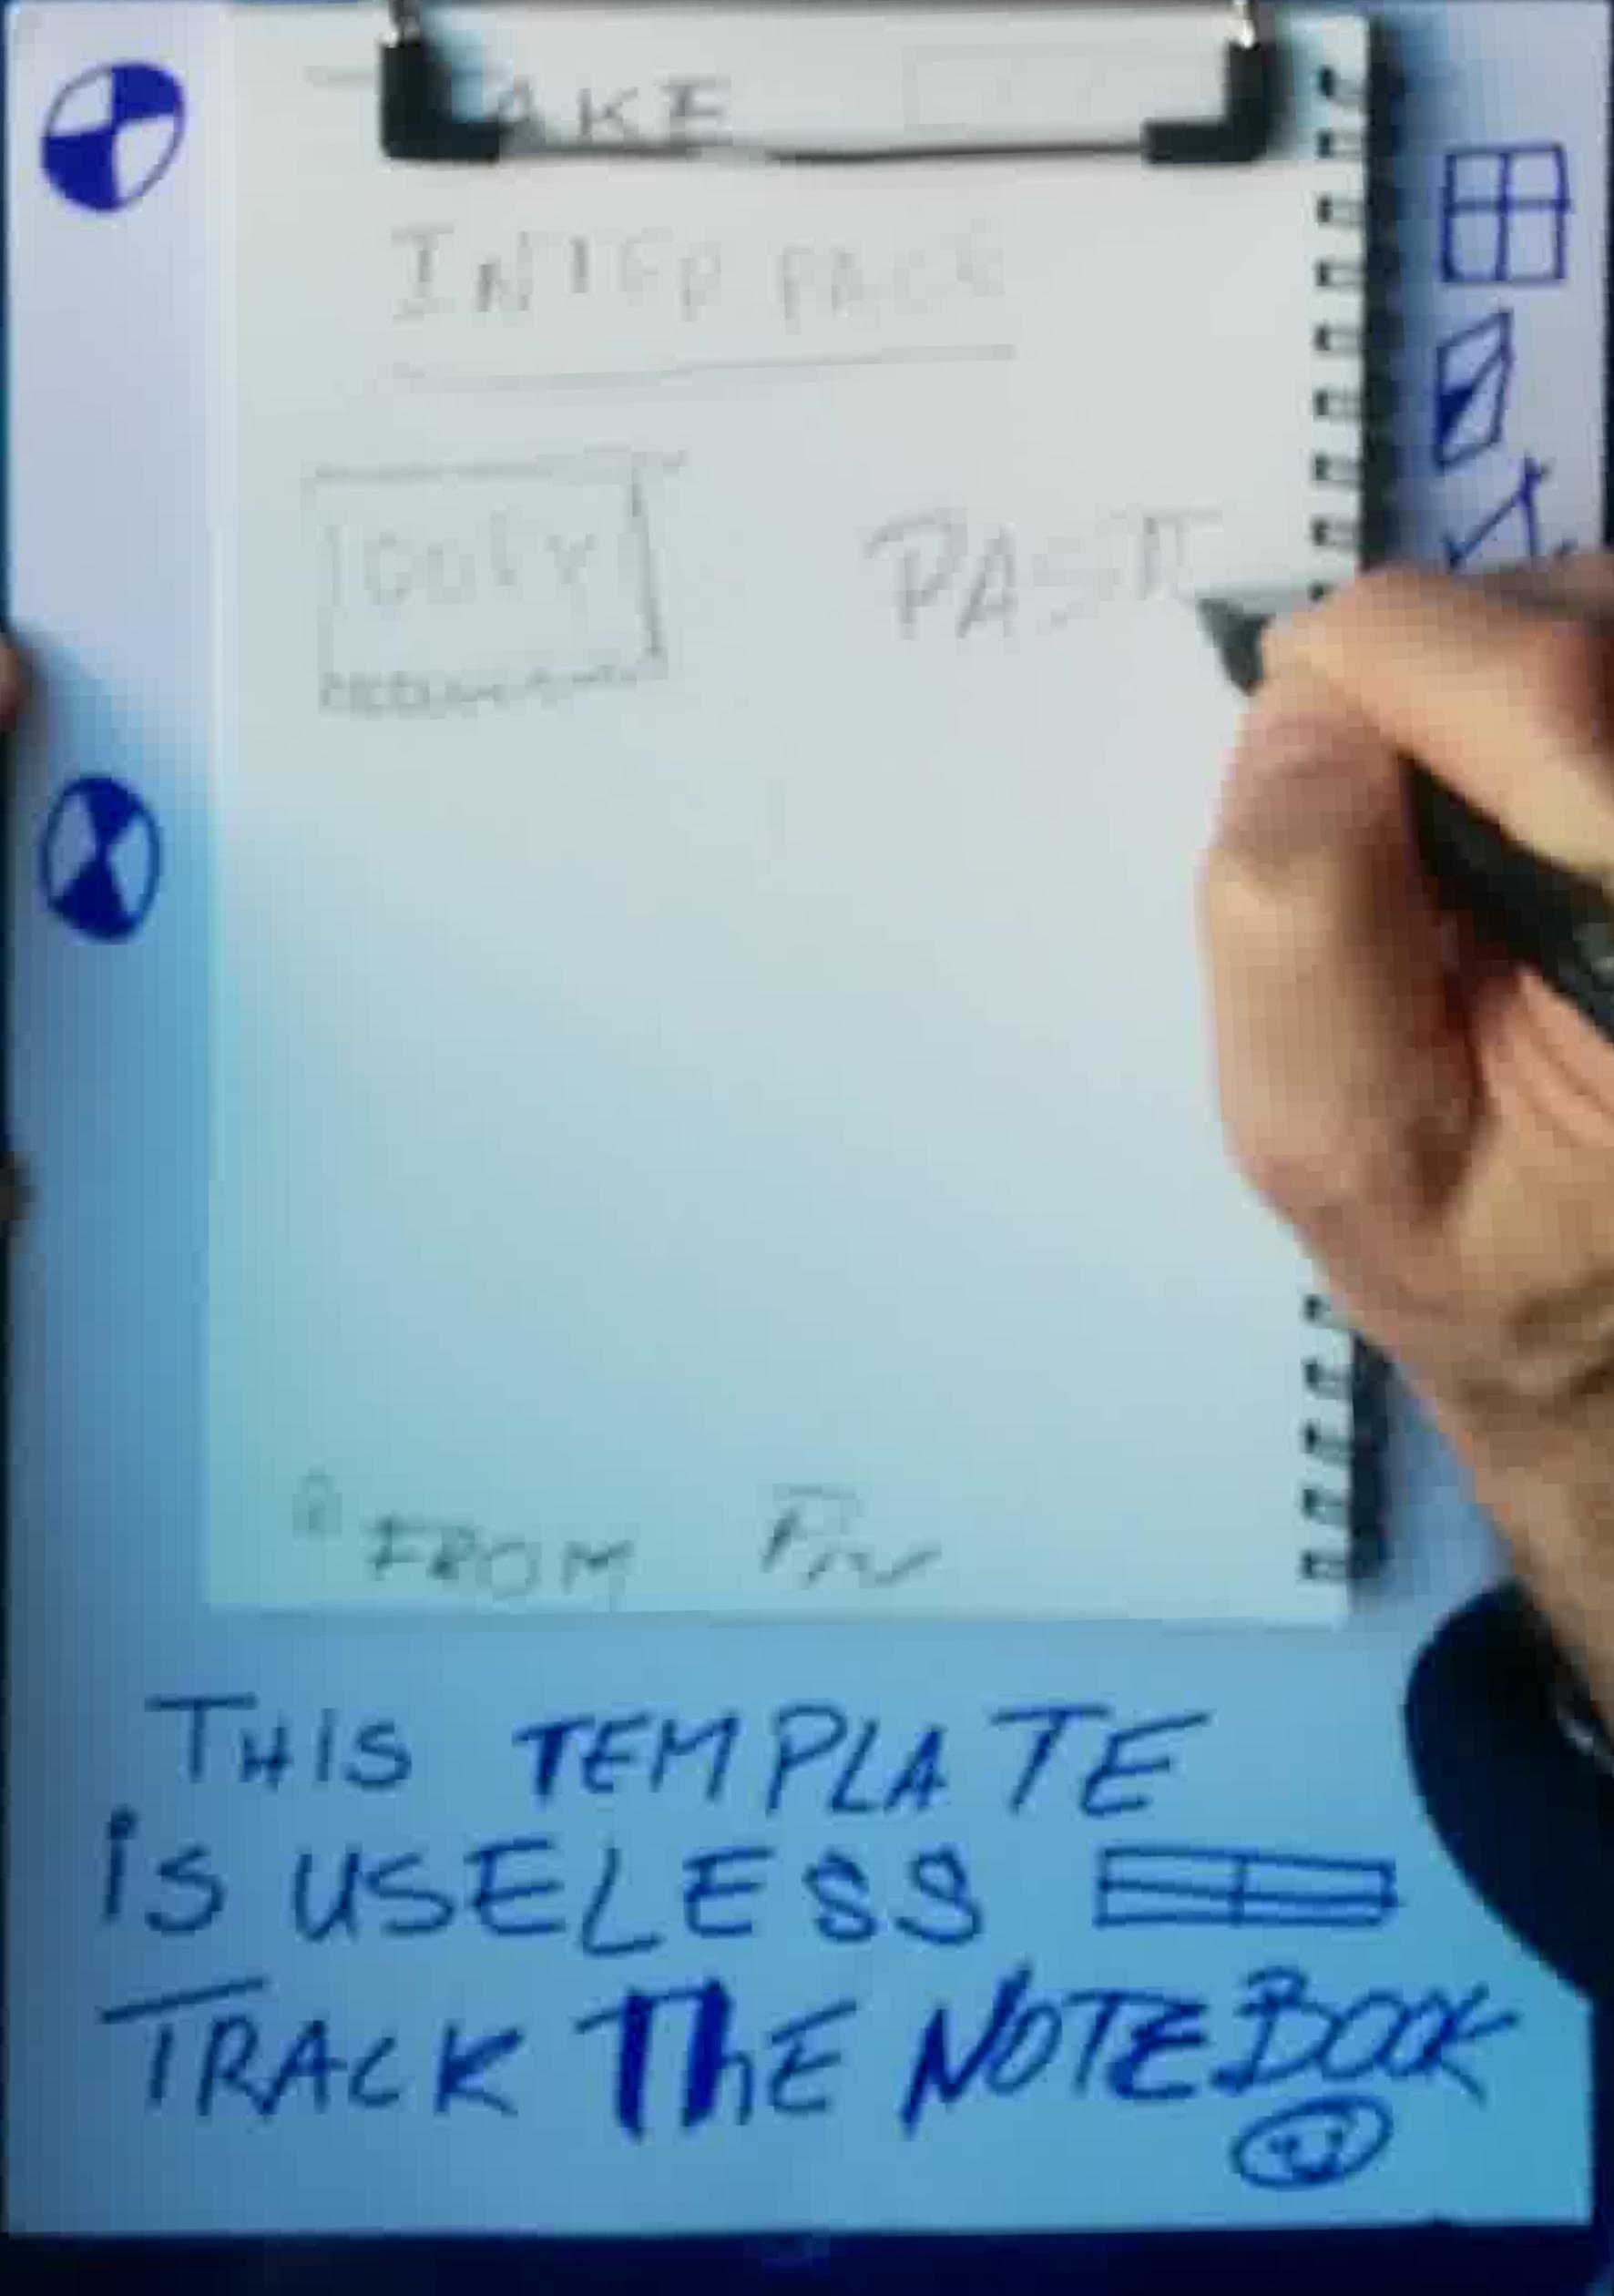 INTERFACE
COPY PAST
FROM
THIS TEMPLATE
is USELESS
TRACK ThE NOTEBOOK